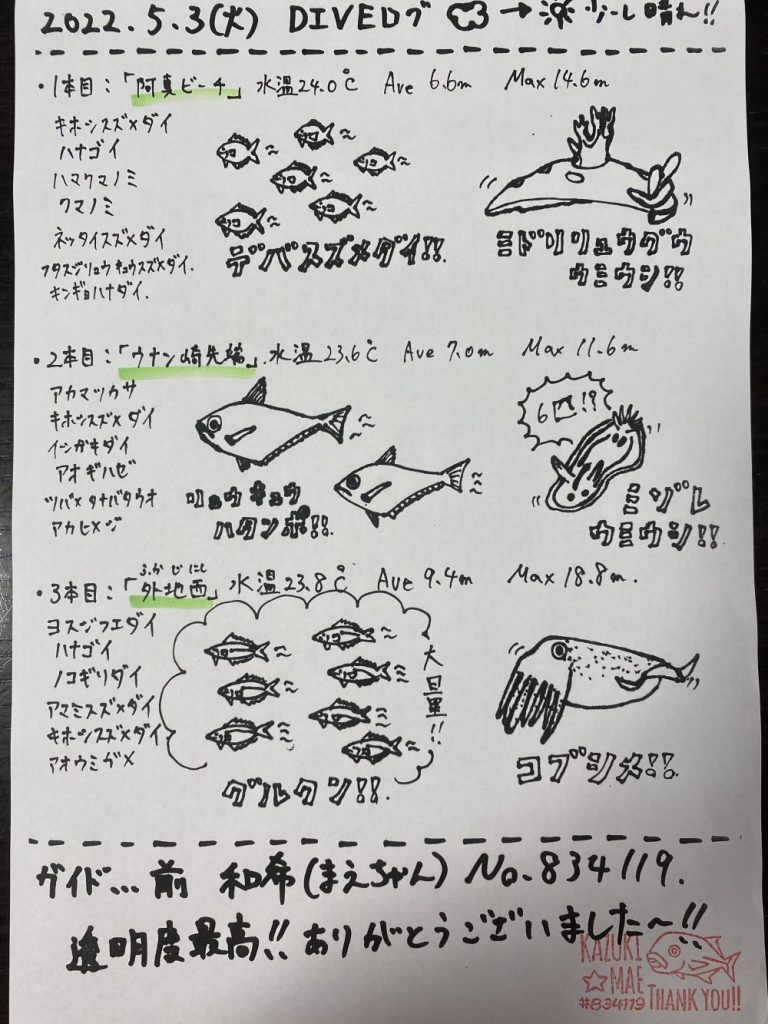 2022.5.3(火) DIVEログ → 少し晴れ!!
・1本目:「阿真ビーチ」 水温24.0℃ Ave 6.6m Max 14.6m
キホシスズメダイ
ハナゴイ
ハマクマノミ
クマノミ
ネッタイスズメダイ
フタスジリュウキュウスズメダイ.
キンギョハナダイ.
デバスズメダイ!!
ミドリリュウグウ
ウミウシ!!
・2本目:「ウナン崎先端」 水温23.6℃ Ave 7.0m Max 11.6m
アカマツカサ
キホシスズメダイ
イシガキダイ
アオギハゼ
ツバメタナバタウオ
アカヒメジ
リュウキュウ
ハタンポ!!
6匹!?
ミゾレ
ウミウシ!!
ふかじにし
・3本目:「外地西」 水温23.8℃ Ave 9.4m Max 18.8m.
ヨスジフエダイ
ハナゴイ
ノコギリダイ
アマミスズメダイ
キホシスズメダイ
アオウミガメ
大量!!
グルクン!!
コブシメ!!
ガイド…前 和希(まえちゃん) No.834119.
透明度最高!! ありがとうございました〜!!
KAZUKI
MAE
#834119
THANK YOU!!